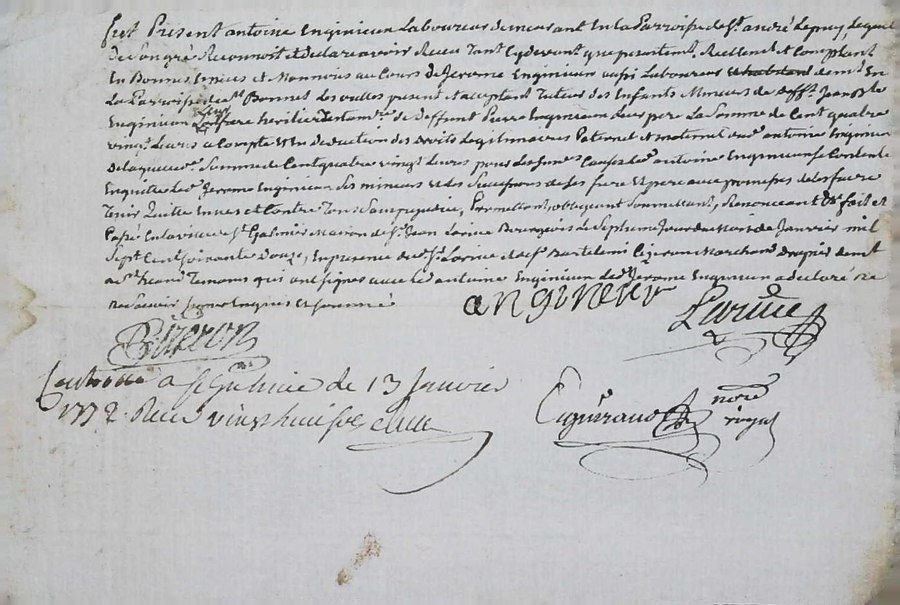 fut Present antoine Enginieur Laboureur demeurant En la Parroisse de St. andré Lepuy, Lequel
de Son gré Reconnoit et declare avoir Receu Tant Cydevant que presentemt. Reellemt et Comptant
En Bonnes Espèces et Monnois au Cours de Jerome Enginieur aussi Laboureur demt. En
La Parroisse de St. Bonnet Les oulles present et acceptant Tuteur des Enfants Mineurs de defft. Jean
Enginieur Leur frere heritier Testamre. de deffunt Pierre Enginieur Leur pere La Somme de Cent quatre
vingt Livres a Compte et En deduction des droits Legitimaires Paternel et maternel dud. antoine Enginieur
de laquelle Somme de Cent quatre vingt Livres pour les susd. Causes led. antoine Enginieur Se Contente
En quitte led. Jerome Enginieur Ses mineurs et des Successions de Ses frere Et pere avec promesses de Les faire
Tenir Quitte Envers et Contre Tous Sans prejudice, Promettant, obligeant Soumettant, Renonceant &c fait et
Passé En la ville de St. Galmier Maison de Sr. Jean Larive Bourgeois Le Septieme Jour du Mois de Janvier mil
Sept Cent Soixante Douze, En presence dud. Sr. Larive et de Sr. Bartelemi Marchand Drapier demt.
aud. St. Temoins qui ont Signes avec led antoine Enginieur Led. Jerome Enginieur a declaré Ne
Scavoir Signer Enquis et Sommé
anginieur
Larive
Controllé a St Galmier le 13 Janvier
1772 Receu vingt huit sols
notre
royal